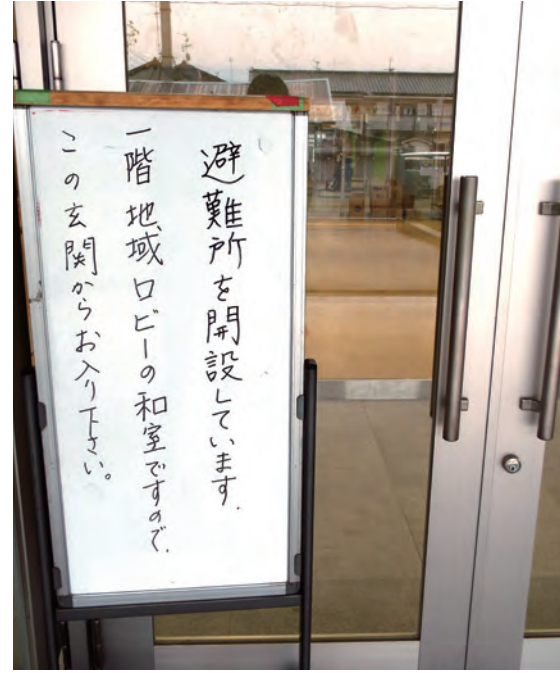 避難所を開設しています.
一階 地域ロビーの和室ですので.
この玄関からお入り下さい。